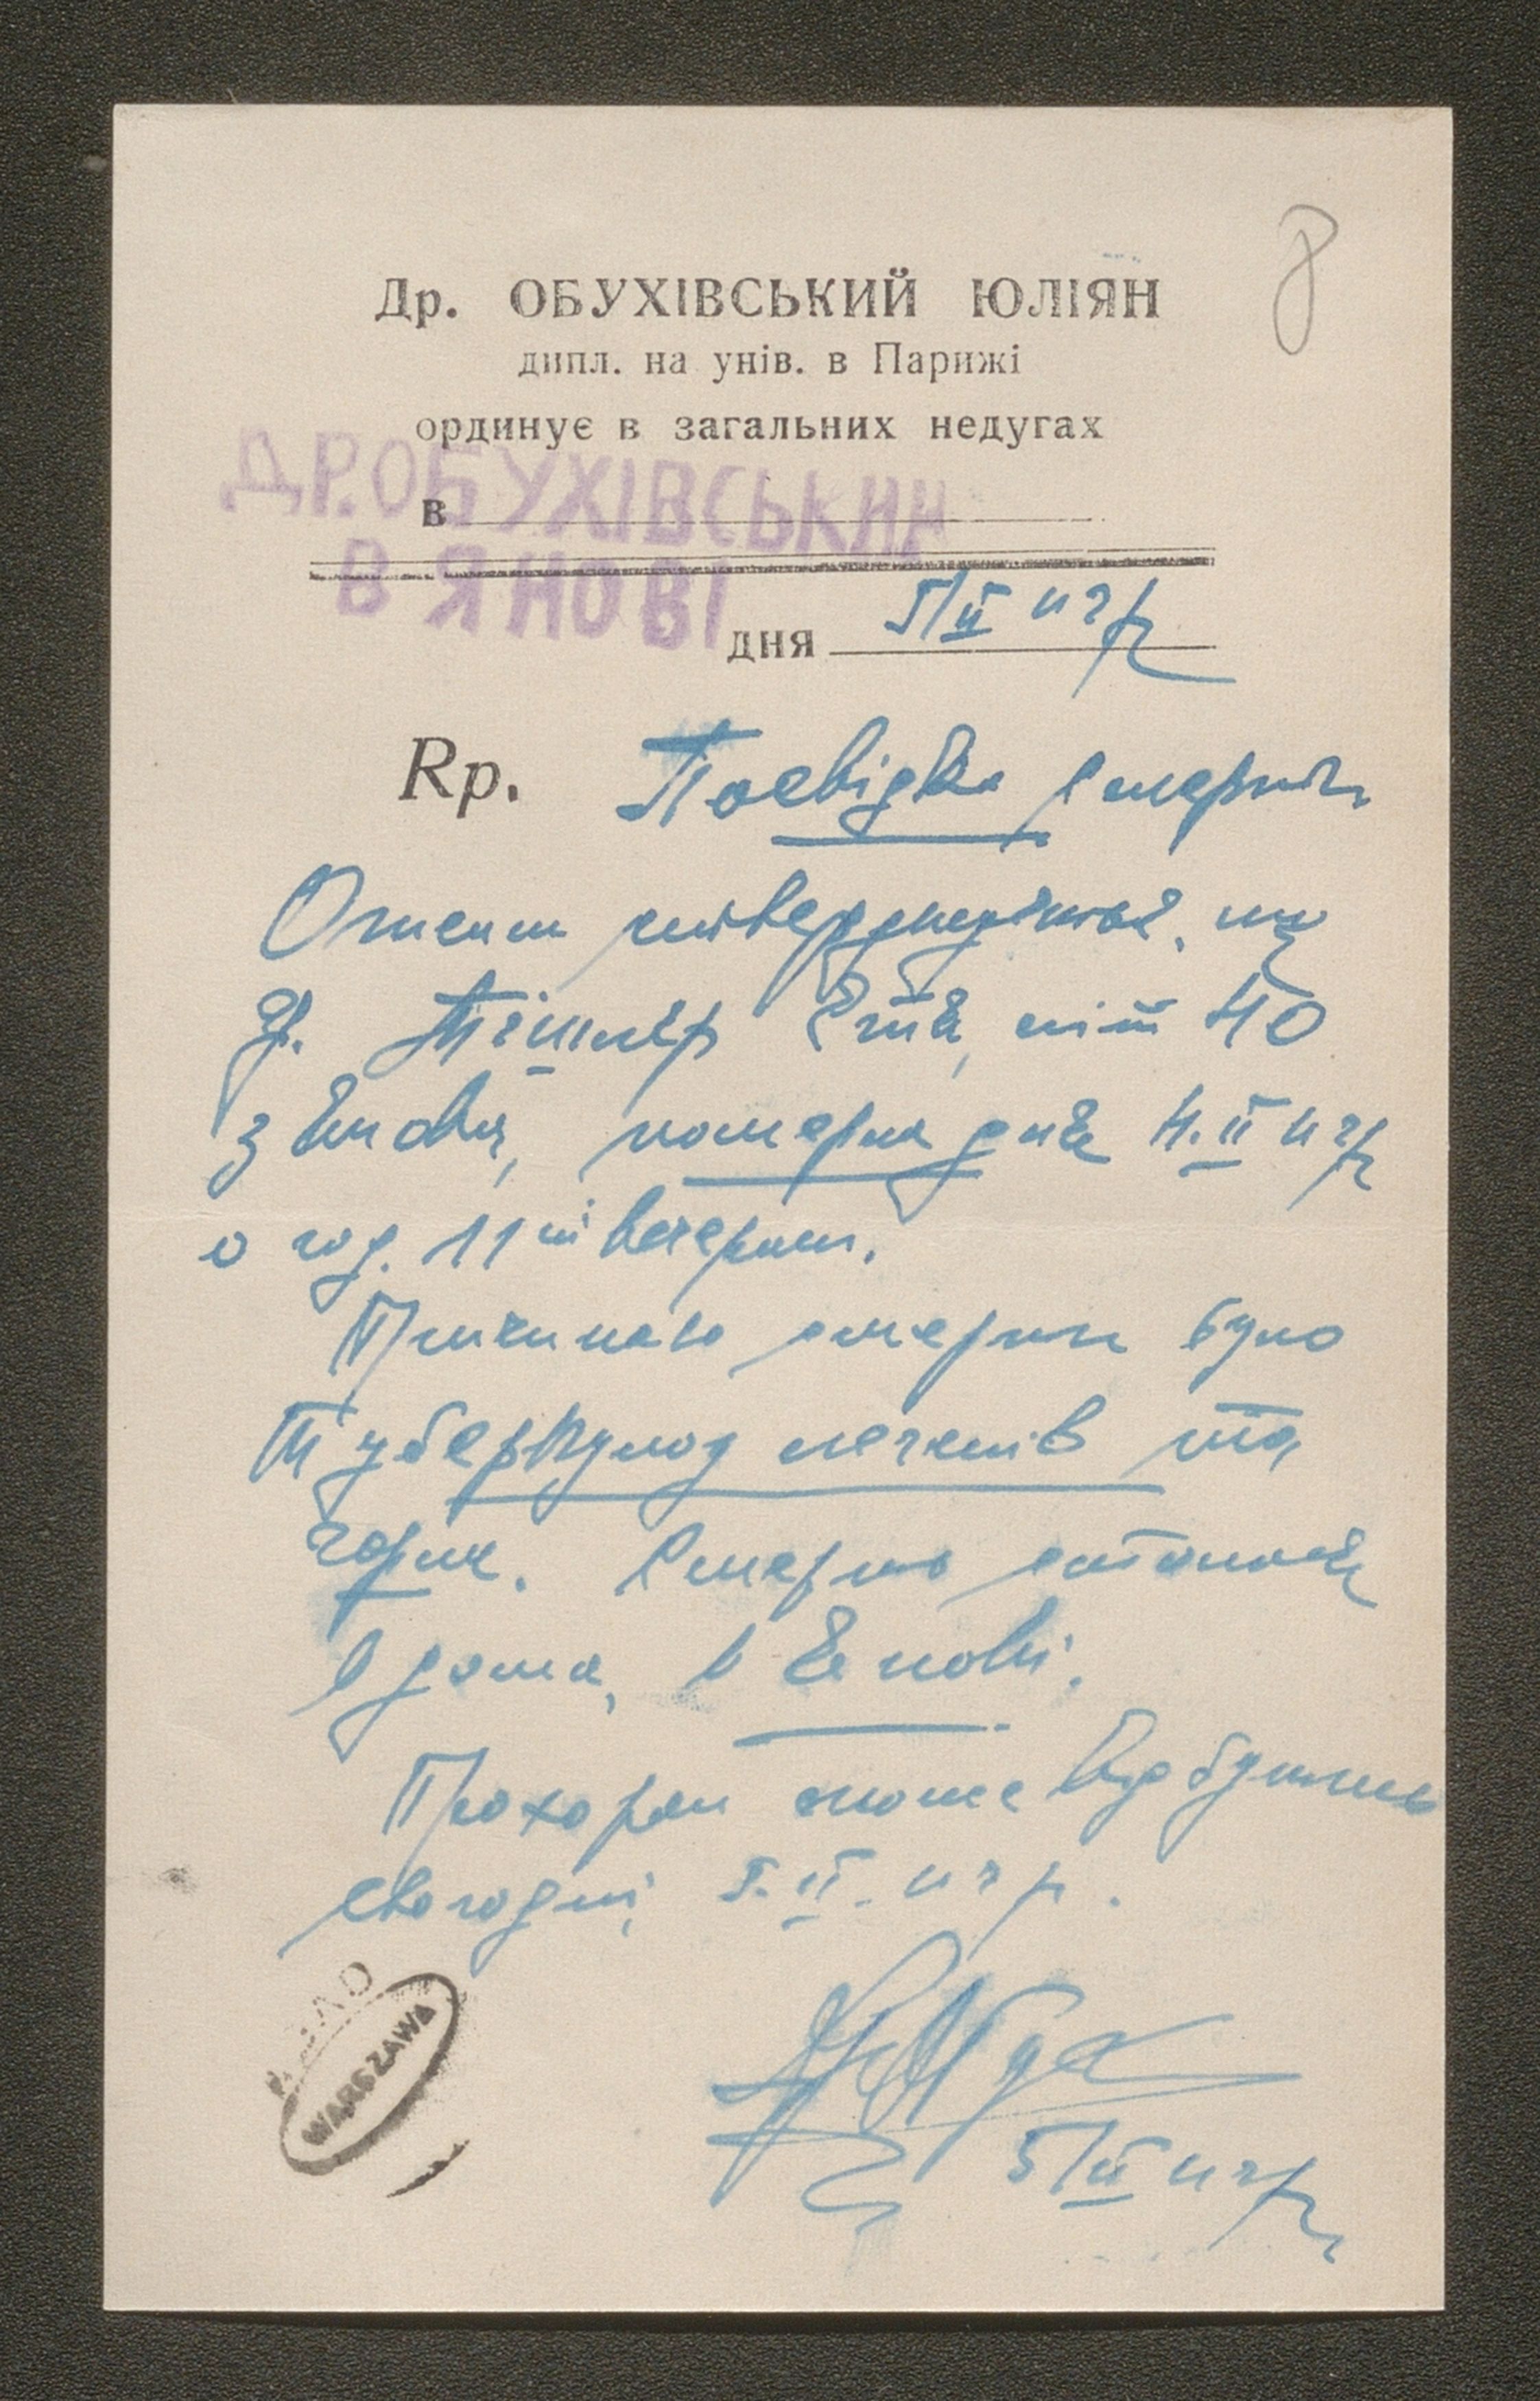 Др. ОБУХІВСЬКИЙ ЮЛІЯН
дипл. на унів. в Парижі
ординує в загальних недугах
в
ДР. ОБУХІВСЬКИЙ
В ЯНОВІ
дня 5/II 42 р
Rp. Посвідка смерти
Отсим стверджується, що
Тішлер Етя, літ 40
з Янова, померла дня 4.II 42 р
о год. 11 ій вечером.
Причиною смерти було
Туберкульоз легенів та
горла. Смерть сталася
в дома, в Янові.
Похорон може відбутись
сьогодні 5.II. 42 р.
5/II 42 р
WARSZAWA